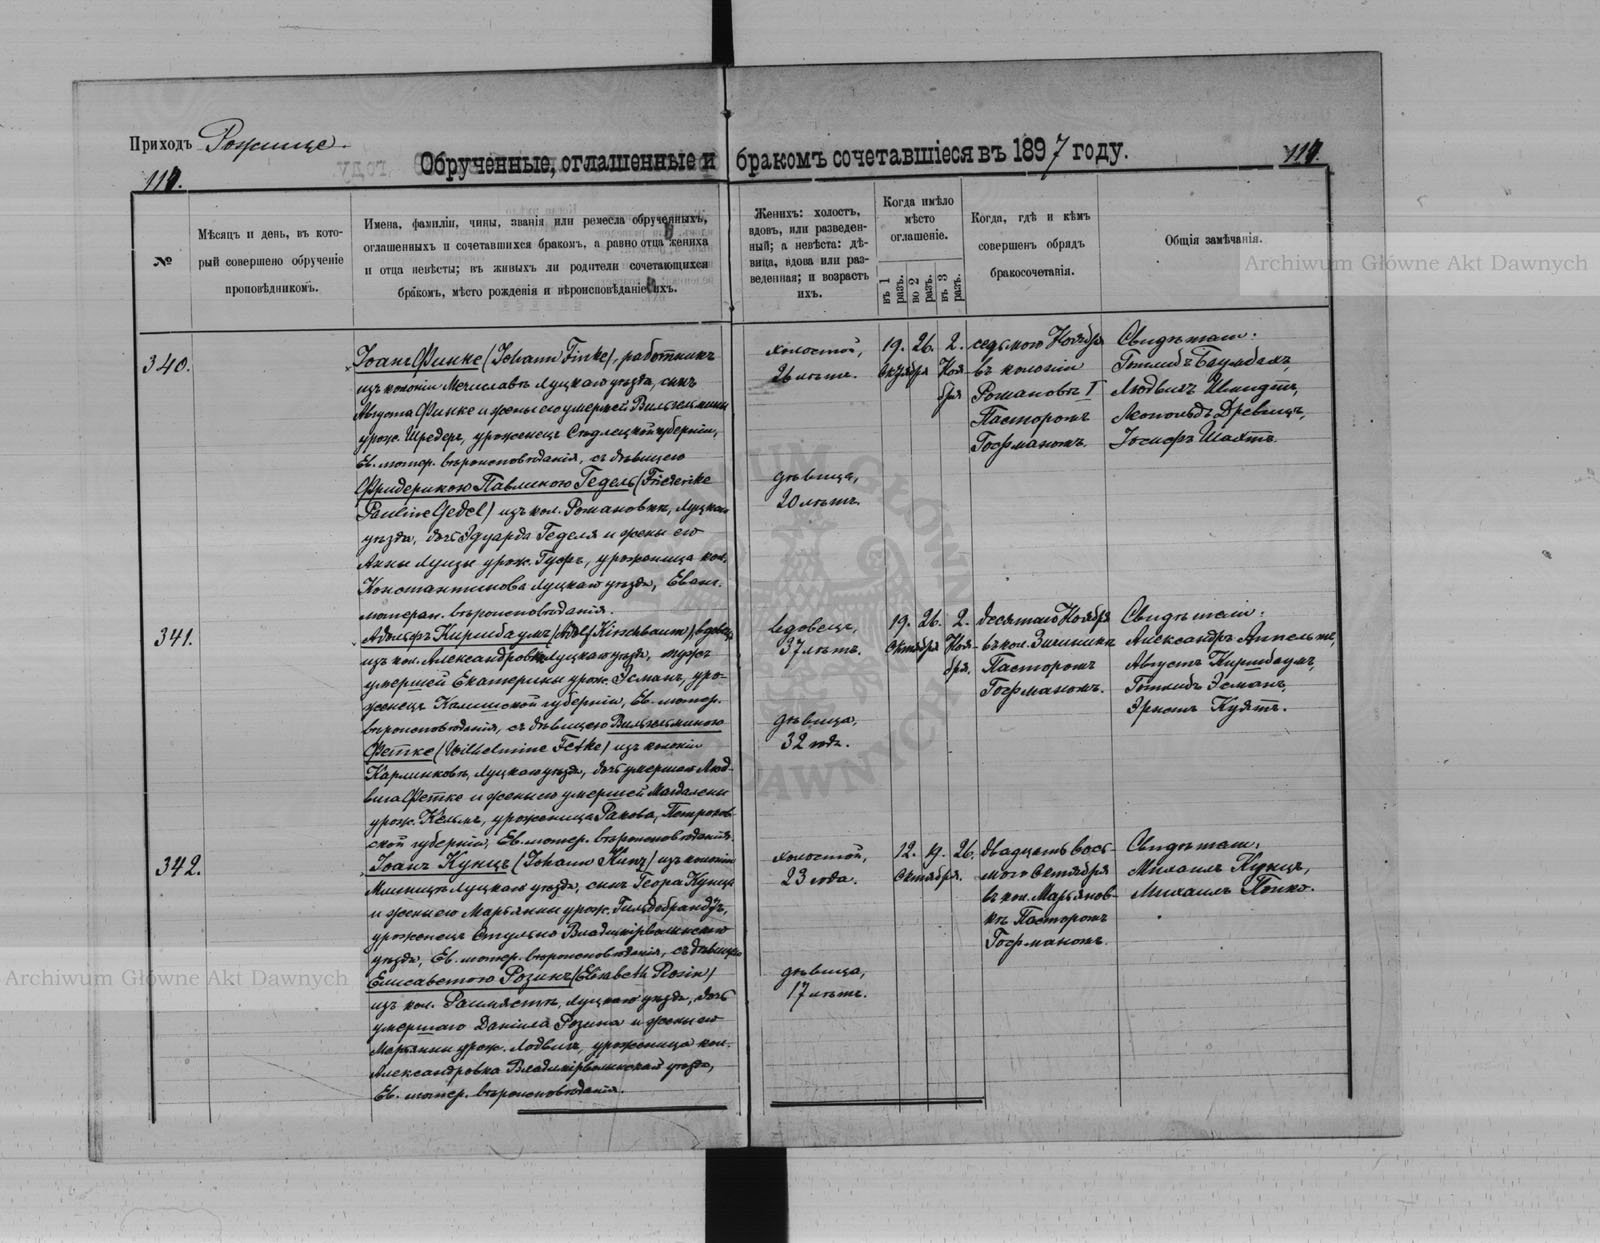 Приходъ Рожище.
Обрученные, оглашенные и бракомъ сочетавшіеся въ 1897 году.
114.
114.
№
Мѣсяцъ и день, въ кото-
рый совершено обрученіе
проповѣдникомъ.
Имена, фамиліи, чины, званія или ремесла обрученныхъ,
оглашенныхъ и сочетавшихся бракомъ, а равно отца жениха
и отца невѣсты; въ живыхъ ли родители сочетающихся
бракомъ, мѣсто рожденія и вѣроисповѣданіе ихъ.
Женихъ: холостъ,
вдовъ, или разведен-
ный; а невѣста: дѣ-
вица, вдова или раз-
веденная; и возрастъ
ихъ.
Когда имѣло
мѣсто
оглашеніе.
въ 1 разъ.
во 2 разъ.
въ 3 разъ.
Когда, гдѣ и кѣмъ
совершенъ обрядъ
бракосочетанія.
Общія замѣчанія.
340.
Іоанъ Финке (Johann Finke), работникъ
изъ колоніи Мечиславъ Луцкаго уѣзда, сынъ
Августа Финке и жены его умершей Вильгельмины
урож. Шредеръ, уроженецъ Сѣдлецкой губерніи,
Ев. лютер. вѣроисповѣданія, съ дѣвицею
Фридерикою Павлиною Гедель (Friederike
Pauline Gedel) изъ кол. Романовки, Луцкаго
уѣзда, дочь Эдуарда Геделя и жены его
Анны Луизы урож. Гуфъ, уроженица кол.
Константинова Луцкаго уѣзда, Еванг.
лютеран. вѣроисповѣданія.
холостой,
26 лѣтъ.
дѣвица,
20 лѣтъ.
19. 26. 2.
Октября Ноя-
бря
седьмого Ноября
въ колоніи
Романовкѣ I
Пасторомъ
Гофманомъ.
Свидѣтели:
Готлибъ Баумбахъ,
Людвигъ Шмидтъ,
Леопольдъ Древицъ,
Іосифъ Шахтъ.
341.
Адольфъ Киршбаумъ (Adolf Kirschbaum) вдовецъ
изъ кол. Александровки Луцкаго уѣзда, мужъ
умершей Екатерины урож. Эсманъ, уро-
женецъ Калишской губерніи, Ев. лютер.
вѣроисповѣданія, съ дѣвицею Вильгельминою
Фетке (Wilhelmine Fetke) изъ колоніи
Карлинковъ, Луцкаго уѣзда, дочь умершаго Люд-
вига Фетке и жены его умершей Магдалены
урож. Кельмъ, уроженица Ракова, Петроков-
ской губерніи, Ев. лютер. вѣроисповѣданія.
вдовецъ,
37 лѣтъ.
дѣвица,
32 года.
19. 26. 2.
Октября Ноя-
бря.
десятаго Ноября
въ кол.
Пасторомъ
Гофманомъ.
Свидѣтели:
Александръ Аппельтъ,
Августъ Киршбаумъ,
Готлибъ Эсманъ,
Эрнстъ Кудтъ.
342.
Іоанъ Кунцъ (Johann Kunz) изъ колоніи
Луцкаго уѣзда, сынъ Георга Кунца
и жены его Марьянны урож. Гильдебрандъ,
уроженецъ Владимірволынскаго
уѣзда, Ев. лютер. вѣроисповѣданія, съ дѣвицею
Елисаветою Розинъ (Elisabeth Rosin)
изъ кол. Луцкаго уѣзда, дочь
умершаго Даніила Розина и жены его
Марьянны урож. Лодвигъ, уроженица кол.
Александровка Владимірволынскаго уѣзда,
Ев. лютер. вѣроисповѣданія.
холостой,
23 года.
дѣвица,
17 лѣтъ.
12. 19. 26.
Октября.
двадцать вось-
мого Октября
въ кол. Марьянов-
кѣ Пасторомъ
Гофманомъ.
Свидѣтели:
Михаилъ Кунцъ,
Михаилъ Попко.
Archiwum Główne Akt Dawnych
Archiwum Główne Akt Dawnych